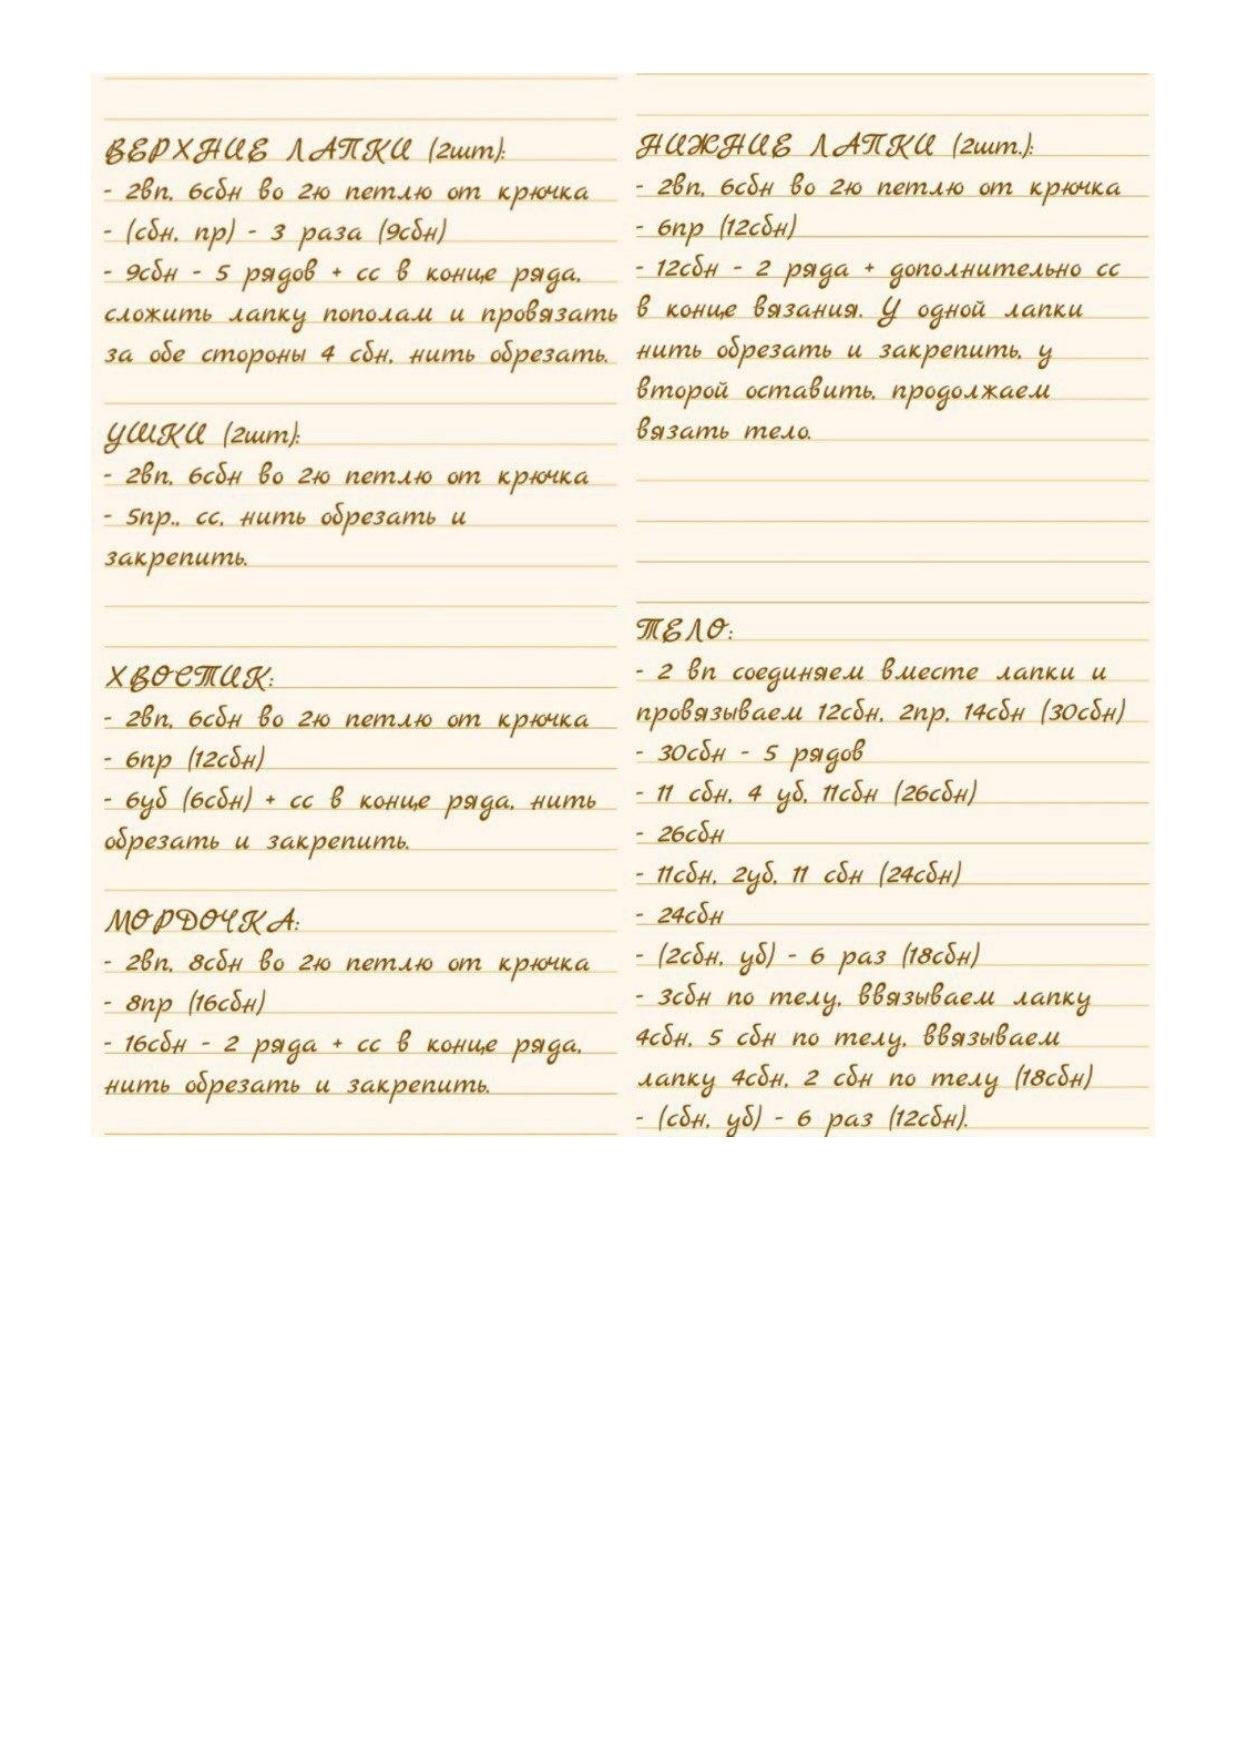 ВЕРХНИЕ ЛАПКИ (2шт):
- 2вп, 6сбн во 2ю петлю от крючка
- (сбн, пр) - 3 раза (9сбн)
- 9сбн - 5 рядов + сс в конце ряда,
сложить лапку пополам и провязать
за обе стороны 4 сбн, нить обрезать.
УШКИ (2шт):
- 2вп, 6сбн во 2ю петлю от крючка
- 5пр., сс, нить обрезать и
закрепить.
ХВОСТИК:
- 2вп, 6сбн во 2ю петлю от крючка
- 6пр (12сбн)
- 6уб (6сбн) + сс в конце ряда, нить
обрезать и закрепить.
МОРДОЧКА:
- 2вп, 8сбн во 2ю петлю от крючка
- 8пр (16сбн)
- 16сбн - 2 ряда + сс в конце ряда,
нить обрезать и закрепить.
НИЖНИЕ ЛАПКИ (2шт.):
- 2вп, 6сбн во 2ю петлю от крючка
- 6пр (12сбн)
- 12сбн - 2 ряда + дополнительно сс
в конце вязания. У одной лапки
нить обрезать и закрепить, у
второй оставить, продолжаем
вязать тело.
ТЕЛО:
- 2 вп соединяем вместе лапки и
провязываем 12сбн, 2пр, 14сбн (30сбн)
- 30сбн - 5 рядов
- 11 сбн, 4 уб, 11сбн (26сбн)
- 26сбн
- 11сбн, 2уб, 11 сбн (24сбн)
- 24сбн
- (2сбн, уб) - 6 раз (18сбн)
- 3сбн по телу, ввязываем лапку
4сбн, 5 сбн по телу, ввязываем
лапку 4сбн, 2 сбн по телу (18сбн)
- (сбн, уб) - 6 раз (12сбн).